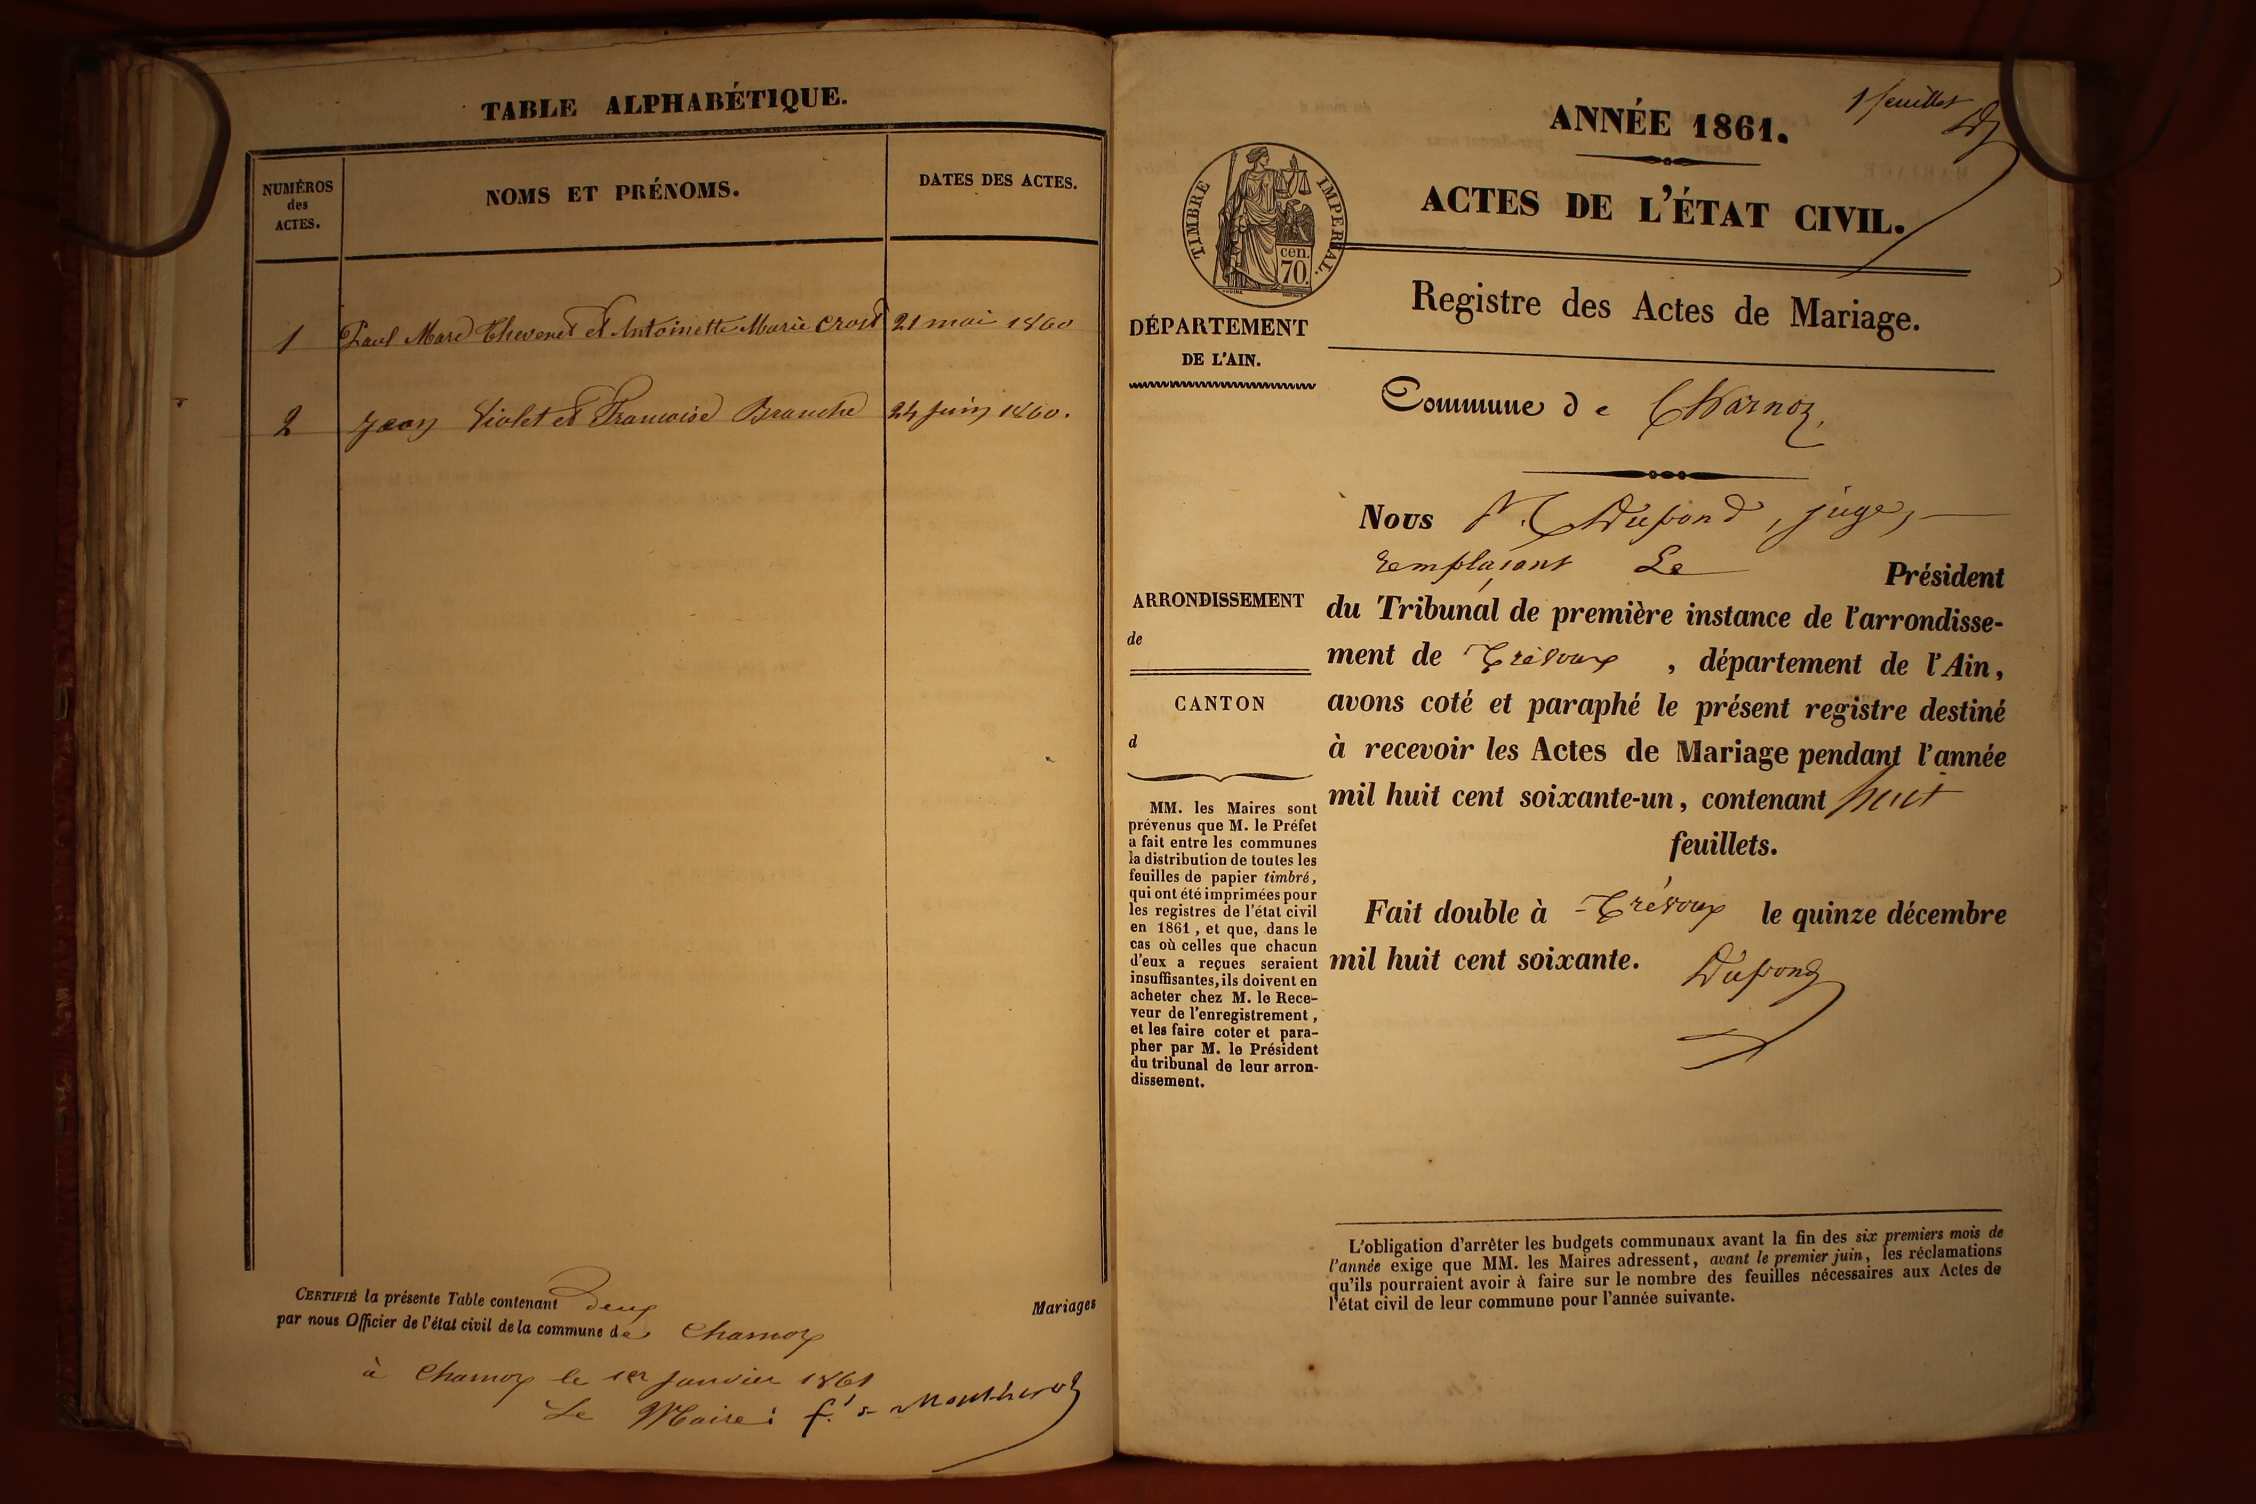 TABLE ALPHABÉTIQUE.
NUMÉROS
des
ACTES.
NOMS ET PRÉNOMS.
DATES DES ACTES.
1 Paul Marc Thevenet et Antoinette Marie 21 mai 1860
2 Jean Violet et Francoise Branche 24 juin 1860.
CERTIFIÉ la présente Table contenant deux Mariages
par nous Officier de l'état civil de la commune de Charnoz
à Charnoz le 1er janvier 1861
Le Maire:
1 feuillet
ANNÉE 1861.
ACTES DE L'ÉTAT CIVIL.
TIMBRE IMPERIAL.
cen.
70.
Registre des Actes de Mariage.
DÉPARTEMENT
DE L'AIN.
Commune de Charnoz,
Nous Dupond, juge,
remplaçant Le Président
du Tribunal de première instance de l'arrondisse-
ment de Trévoux, département de l'Ain,
avons coté et paraphé le présent registre destiné
à recevoir les Actes de Mariage pendant l'année
mil huit cent soixante-un, contenant huit
feuillets.
Fait double à Trévoux le quinze décembre
mil huit cent soixante.
Dupond
ARRONDISSEMENT
de
CANTON
d
MM. les Maires sont
prévenus que M. le Préfet
a fait entre les communes
la distribution de toutes les
feuilles de papier timbré,
qui ont été imprimées pour
les registres de l'état civil
en 1861, et que, dans le
cas où celles que chacun
d'eux a reçues seraient
insuffisantes, ils doivent en
acheter chez M. le Rece-
veur de l'enregistrement,
et les faire coter et para-
pher par M. le Président
du tribunal de leur arron-
dissement.
L'obligation d'arrêter les budgets communaux avant la fin des six premiers mois de
l'année exige que MM. les Maires adressent, avant le premier juin, les réclamations
qu'ils pourraient avoir à faire sur le nombre des feuilles nécessaires aux Actes de
l'état civil de leur commune pour l'année suivante.